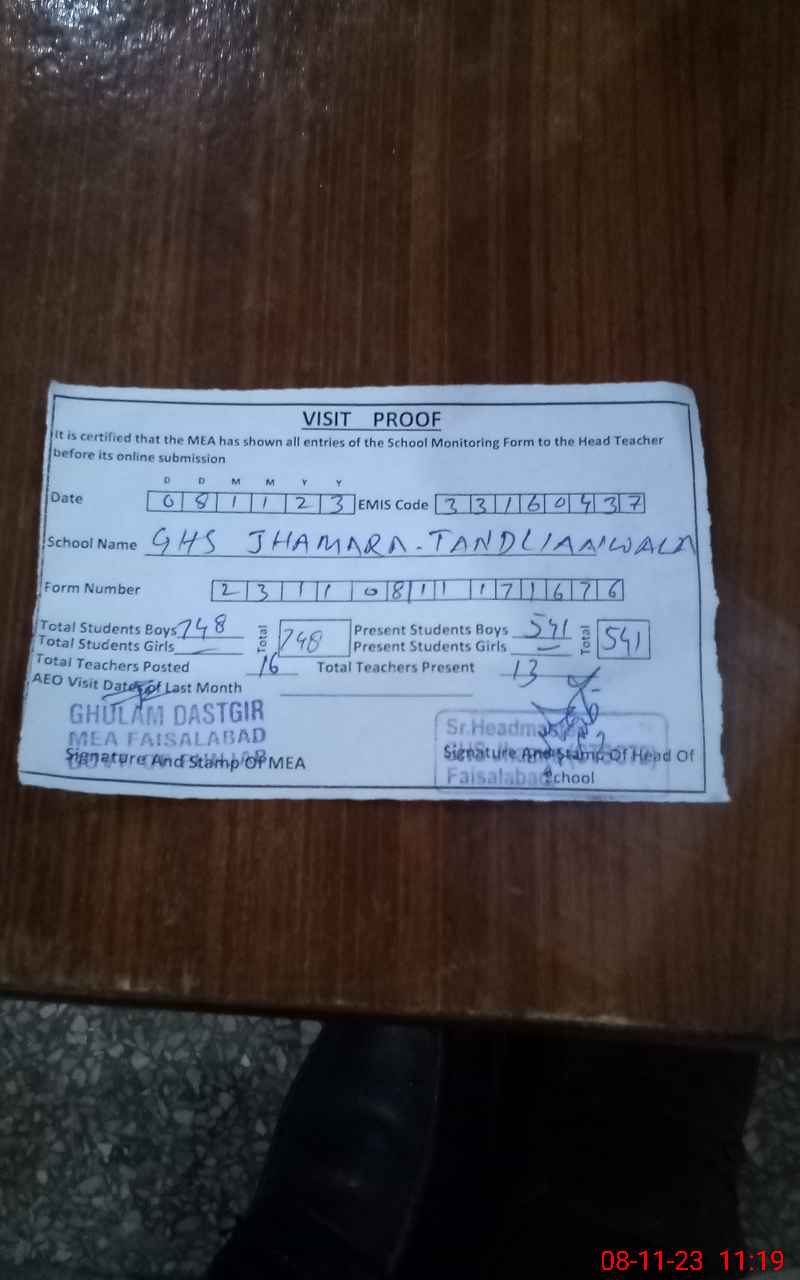 VISIT PROOF
It is certified that the MEA has shown all entries of the School Monitoring Form to the Head Teacher
before its online submission
D D M M Y Y
Date 0 8 1 1 2 3 EMIS Code 3 3 1 6 0 4 3 7
School Name GHS JHAMARA-TANDLIAAIWALA
Form Number 2 3 1 1 0 8 1 1 1 7 1 6 7 6
Total Students Boys 748 Total 748 Present Students Boys 541 Total 541
Total Students Girls — Present Students Girls —
Total Teachers Posted 16 Total Teachers Present 13
AEO Visit Date of Last Month
GHULAM DASTGIR
MEA FAISALABAD
Signature And Stamp Of MEA
Sr.Headmas
Signature And Stamp Of Head Of
Faisalabad
School
08-11-23 11:19